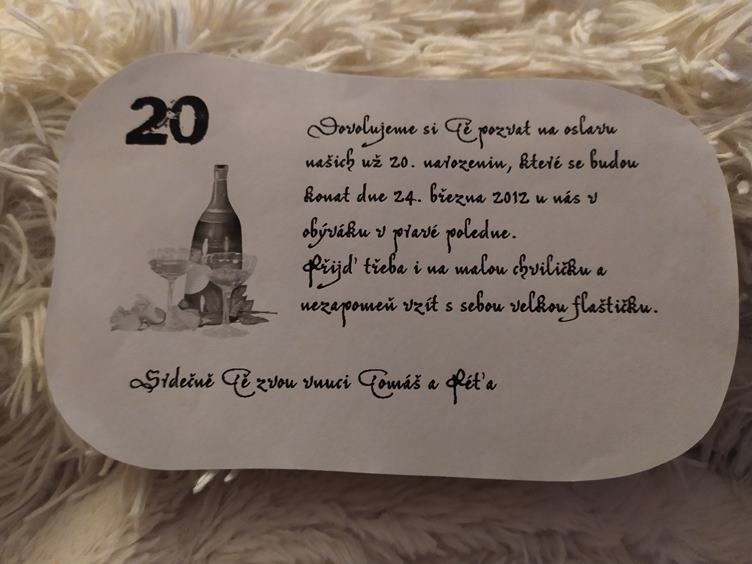 20
Dovolujeme si Tě pozvat na oslavu
našich už 20. narozenin, které se budou
konat dne 24. března 2012 u nás v
obýváku v pravé poledne.
Přijď třeba i na malou chviličku a
nezapomeň vzít s sebou velkou flaštičku.
Srdečně Tě zvou vnuci Tomáš a Péťa